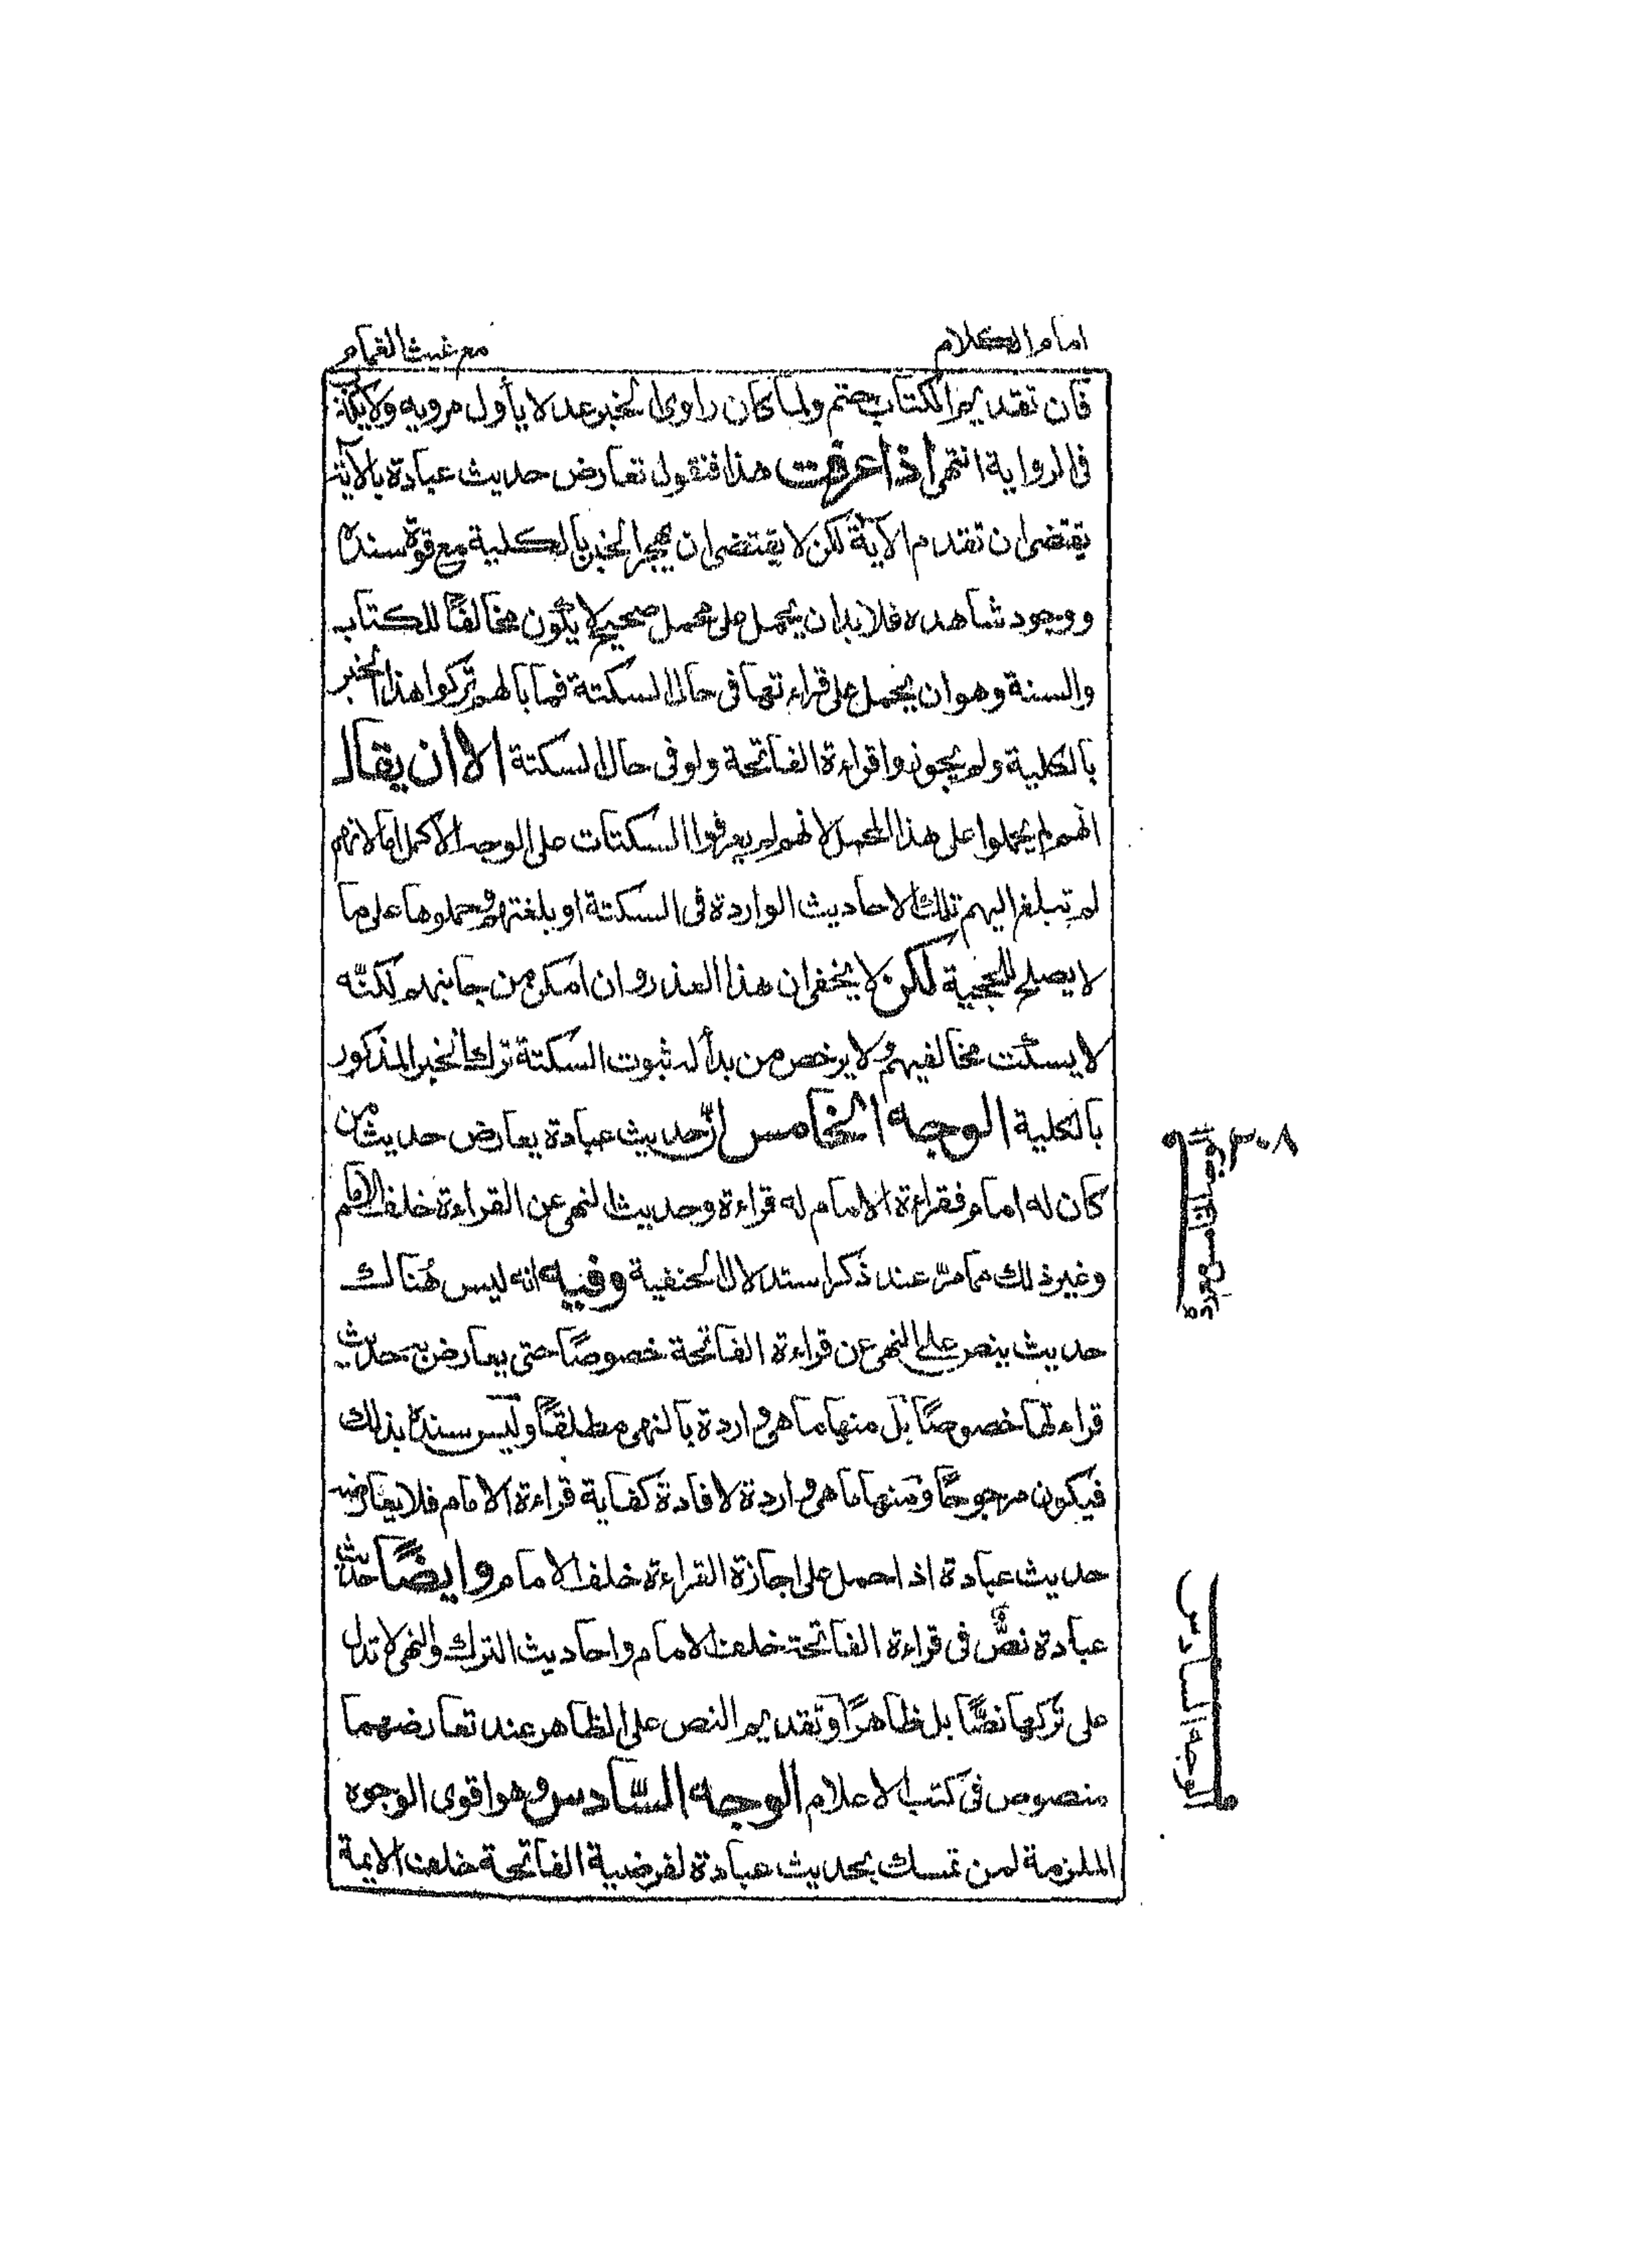 امام الكلام
مع غيث الغمام
فان تقديم الكتاب حتم ولما كان راوى الخبر عدلا يأول مرويه ولا يكذب
فى الرواية انتهى اذا عرفت هذا فنقول تعارض حديث عبادة بالآية
يقتضى ان تقدم الآية لكن لا يقتضى ان يهجر الخبر بالكلية مع قوة سنده
ووجود شاهده فلا بد ان يحمل على محمل صحيح لا يكون مخالفًا للكتاب
والسنة وهو ان يحمل على قراءتها فى حال السكتة فما بالهم تركوا هذا الخبر
بالكلية ولم يجوزوا قراءة الفاتحة ولو فى حال السكتة الا ان يقال
انهم لم يحملوا على هذا المحمل لانهم لم يعرفوا السكتات على الوجه الاكمل اما لانهم
لم تبلغ اليهم تلك الاحاديث الواردة فى السكتة او بلغتهم وحملوها على ما
لا يصلح للحجية لكن لا يخفى ان هذا العذر وان امكن من جانبهم لكنّه
لا يسكت مخالفيهم ولا يرخص من بدأ له ثبوت السكتة ترك الخبر المذكور
بالكلية الوجه الخامس انّ حديث عبادة يعارض حديث من
كان له امام فقراءة الامام له قراءة وحديث النهى عن القراءة خلف الامام
وغير ذلك مما مرّ عند ذكر استدلال الحنفية وفيه انه ليس هُنالك
حديث ينص على النهى عن قراءة الفاتحة خصوصًا حتى يعارض به حديث
قراءتها خصوصًا بل منها ما هى واردة بالنهى مطلقًا وليس سنده بذلك
فيكون مرجوحًا ومنها ما هى واردة لافادة كفاية قراءة الامام فلا يعارضه
حديث عبادة اذا حمل على اجازة القراءة خلف الامام وايضًا حديث
عبادة نصٌّ فى قراءة الفاتحة خلف الامام واحاديث الترك والنهى لا تدل
على تركها نصًّا بل ظاهرًا وتقديم النص على الظاهر عند تعارضهما
منصوص فى كتب الاعلام الوجه السّادس وهو اقوى الوجوه
الملزمة لمن تمسك بحديث عبادة لفرضية الفاتحة خلف الائمة
٣٠٨
الوجه الخامس
الوجه السادس